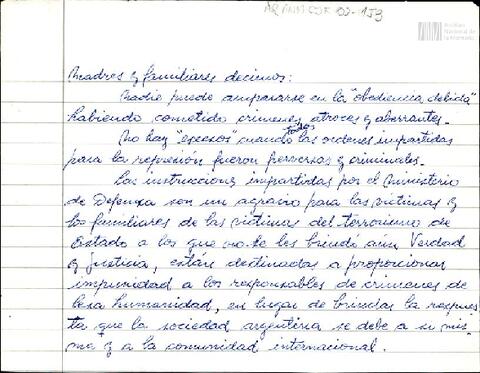 AR ANM CDF 02-153
Archivo
Nacional de
la Memoria
Madres y familiares decimos:
Nadie puede ampararse en la "obediencia debida"
habiendo cometido crimenes atroces y aberrantes.
No hay "excesos" cuando todas las ordenes impartidas
para la represión fueron perversas y criminales.
Las instrucciones impartidas por el Ministerio
de Defensa son un agravio para las victimas y
los familiares de las victimas del terrorismo de
Estado a los que no se les brindó aún Verdad
y Justicia, están destinadas a proporcionar
impunidad a los responsables de crimenes de
lesa humanidad, en lugar de brindar la respues
ta que la sociedad argentina se debe a si mis
ma y a la comunidad internacional.